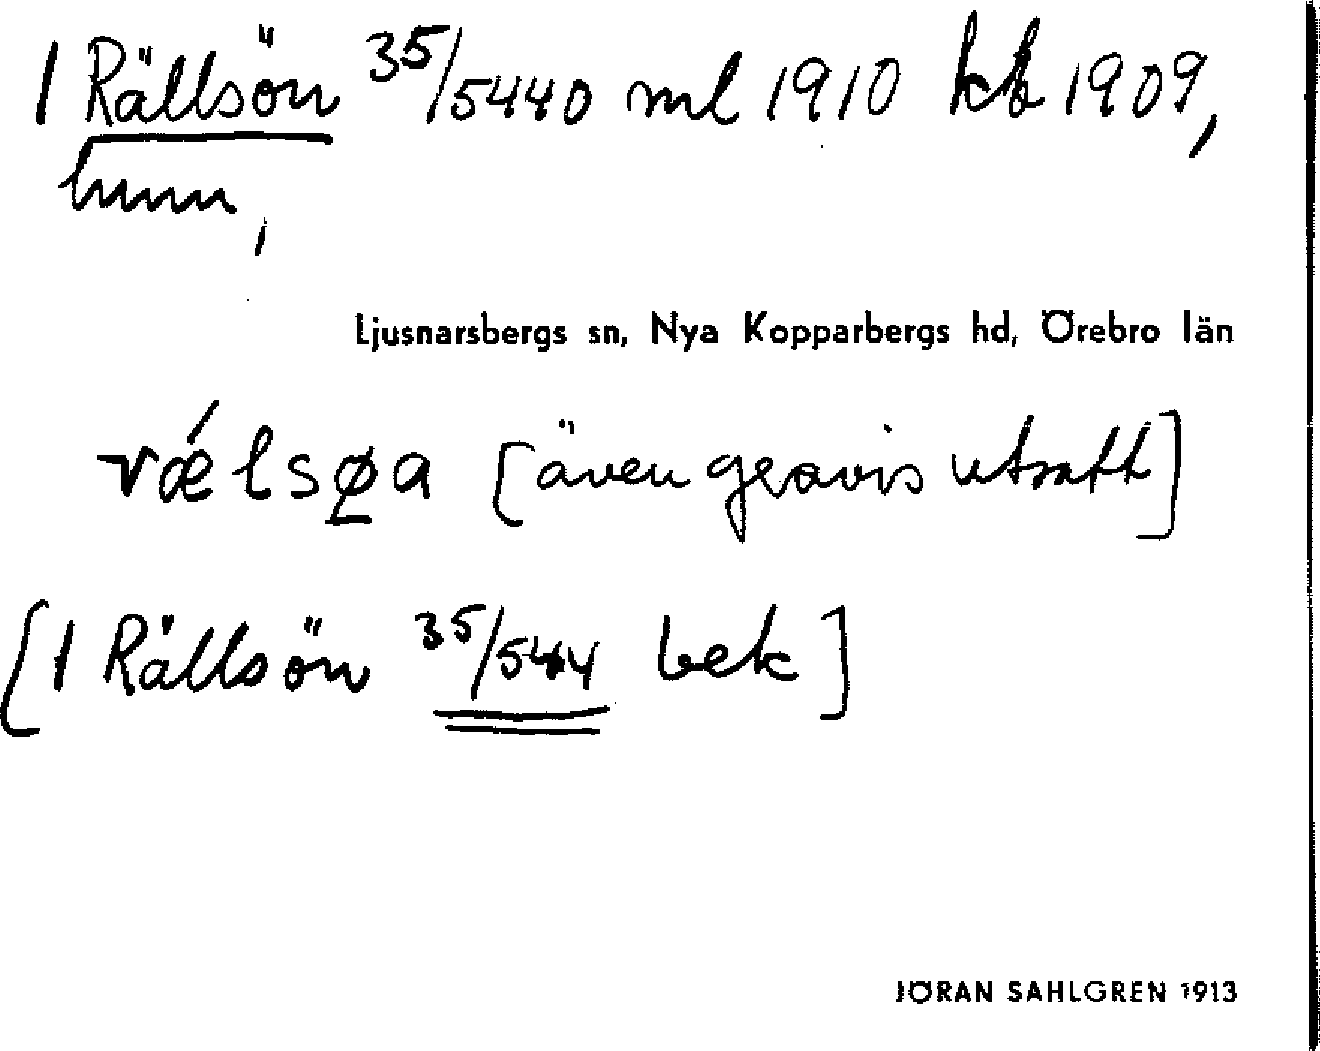 1 Rällsön 35/5440 ml 1910 kb 1909,
hmm,
Ljusnarsbergs sn, Nya Kopparbergs hd, Örebro län
rǽlsø̱a [även gravis utsatt]
[1 Rällsön 35/544 bek]
JÖRAN SAHLGREN 1913